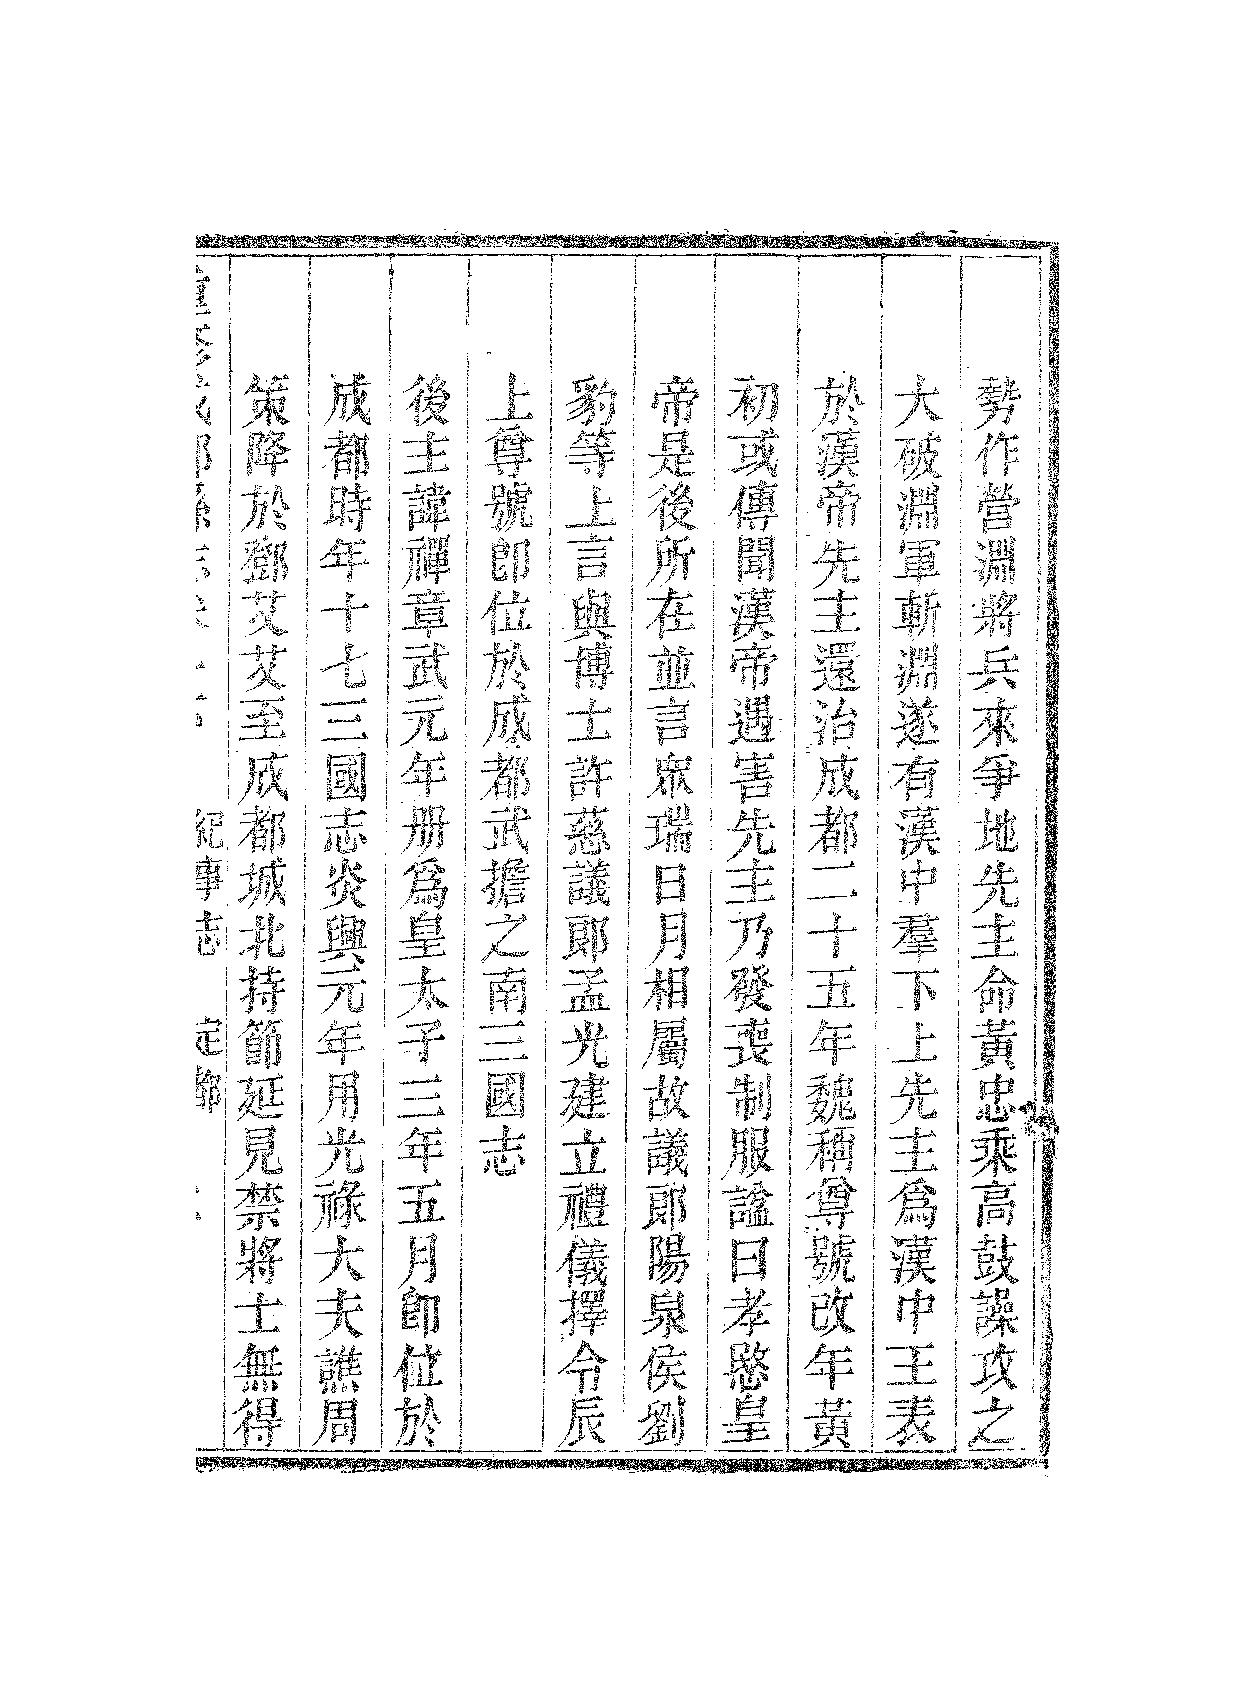 勢作營淵將兵來爭地先主命黃忠乘高鼓譟攻之
大破淵軍斬淵遂有漢中羣下上先主爲漢中王表
於漢帝先主還治成都二十五年魏稱尊號改年黃
初或傳聞漢帝遇害先主乃發喪制服諡曰孝愍皇
帝是後所在並言眾瑞日月相屬故議郎陽泉侯劉
豹等上言與博士許慈議郎孟光建立禮儀擇令辰
上尊號卽位於成都武擔之南三國志
後主諱禪章武元年册爲皇太子三年五月卽位於
成都時年十七三國志炎興元年用光祿大夫譙周
策降於鄧艾艾至成都城北持節延見禁將士無得
紀事志 定都